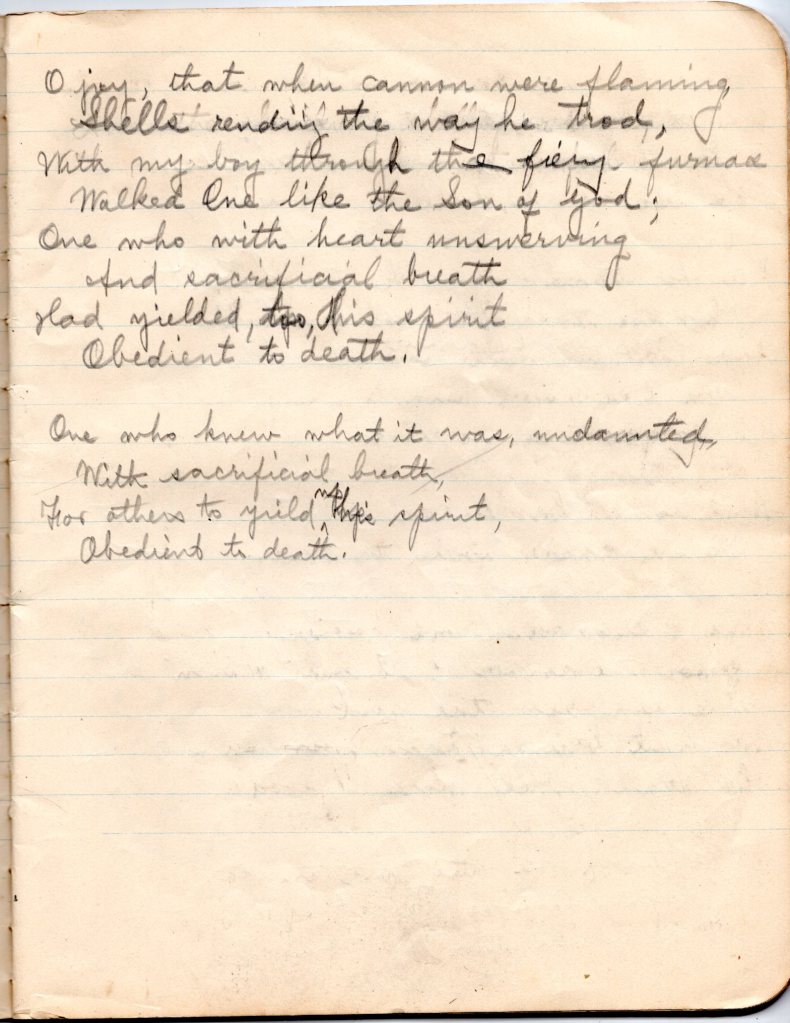 O joy, that when cannon were flaming,
Shells rending the way he trod,
With my boy through the fiery furnace
Walked One like the Son of God;
One who with heart unswerving
And sacrificial breath
Had yielded, too, his spirit
Obedient to death.
One who knew what it was, undaunted,
With sacrificial breath,
For others to yield his spirit,
Obedient to death.